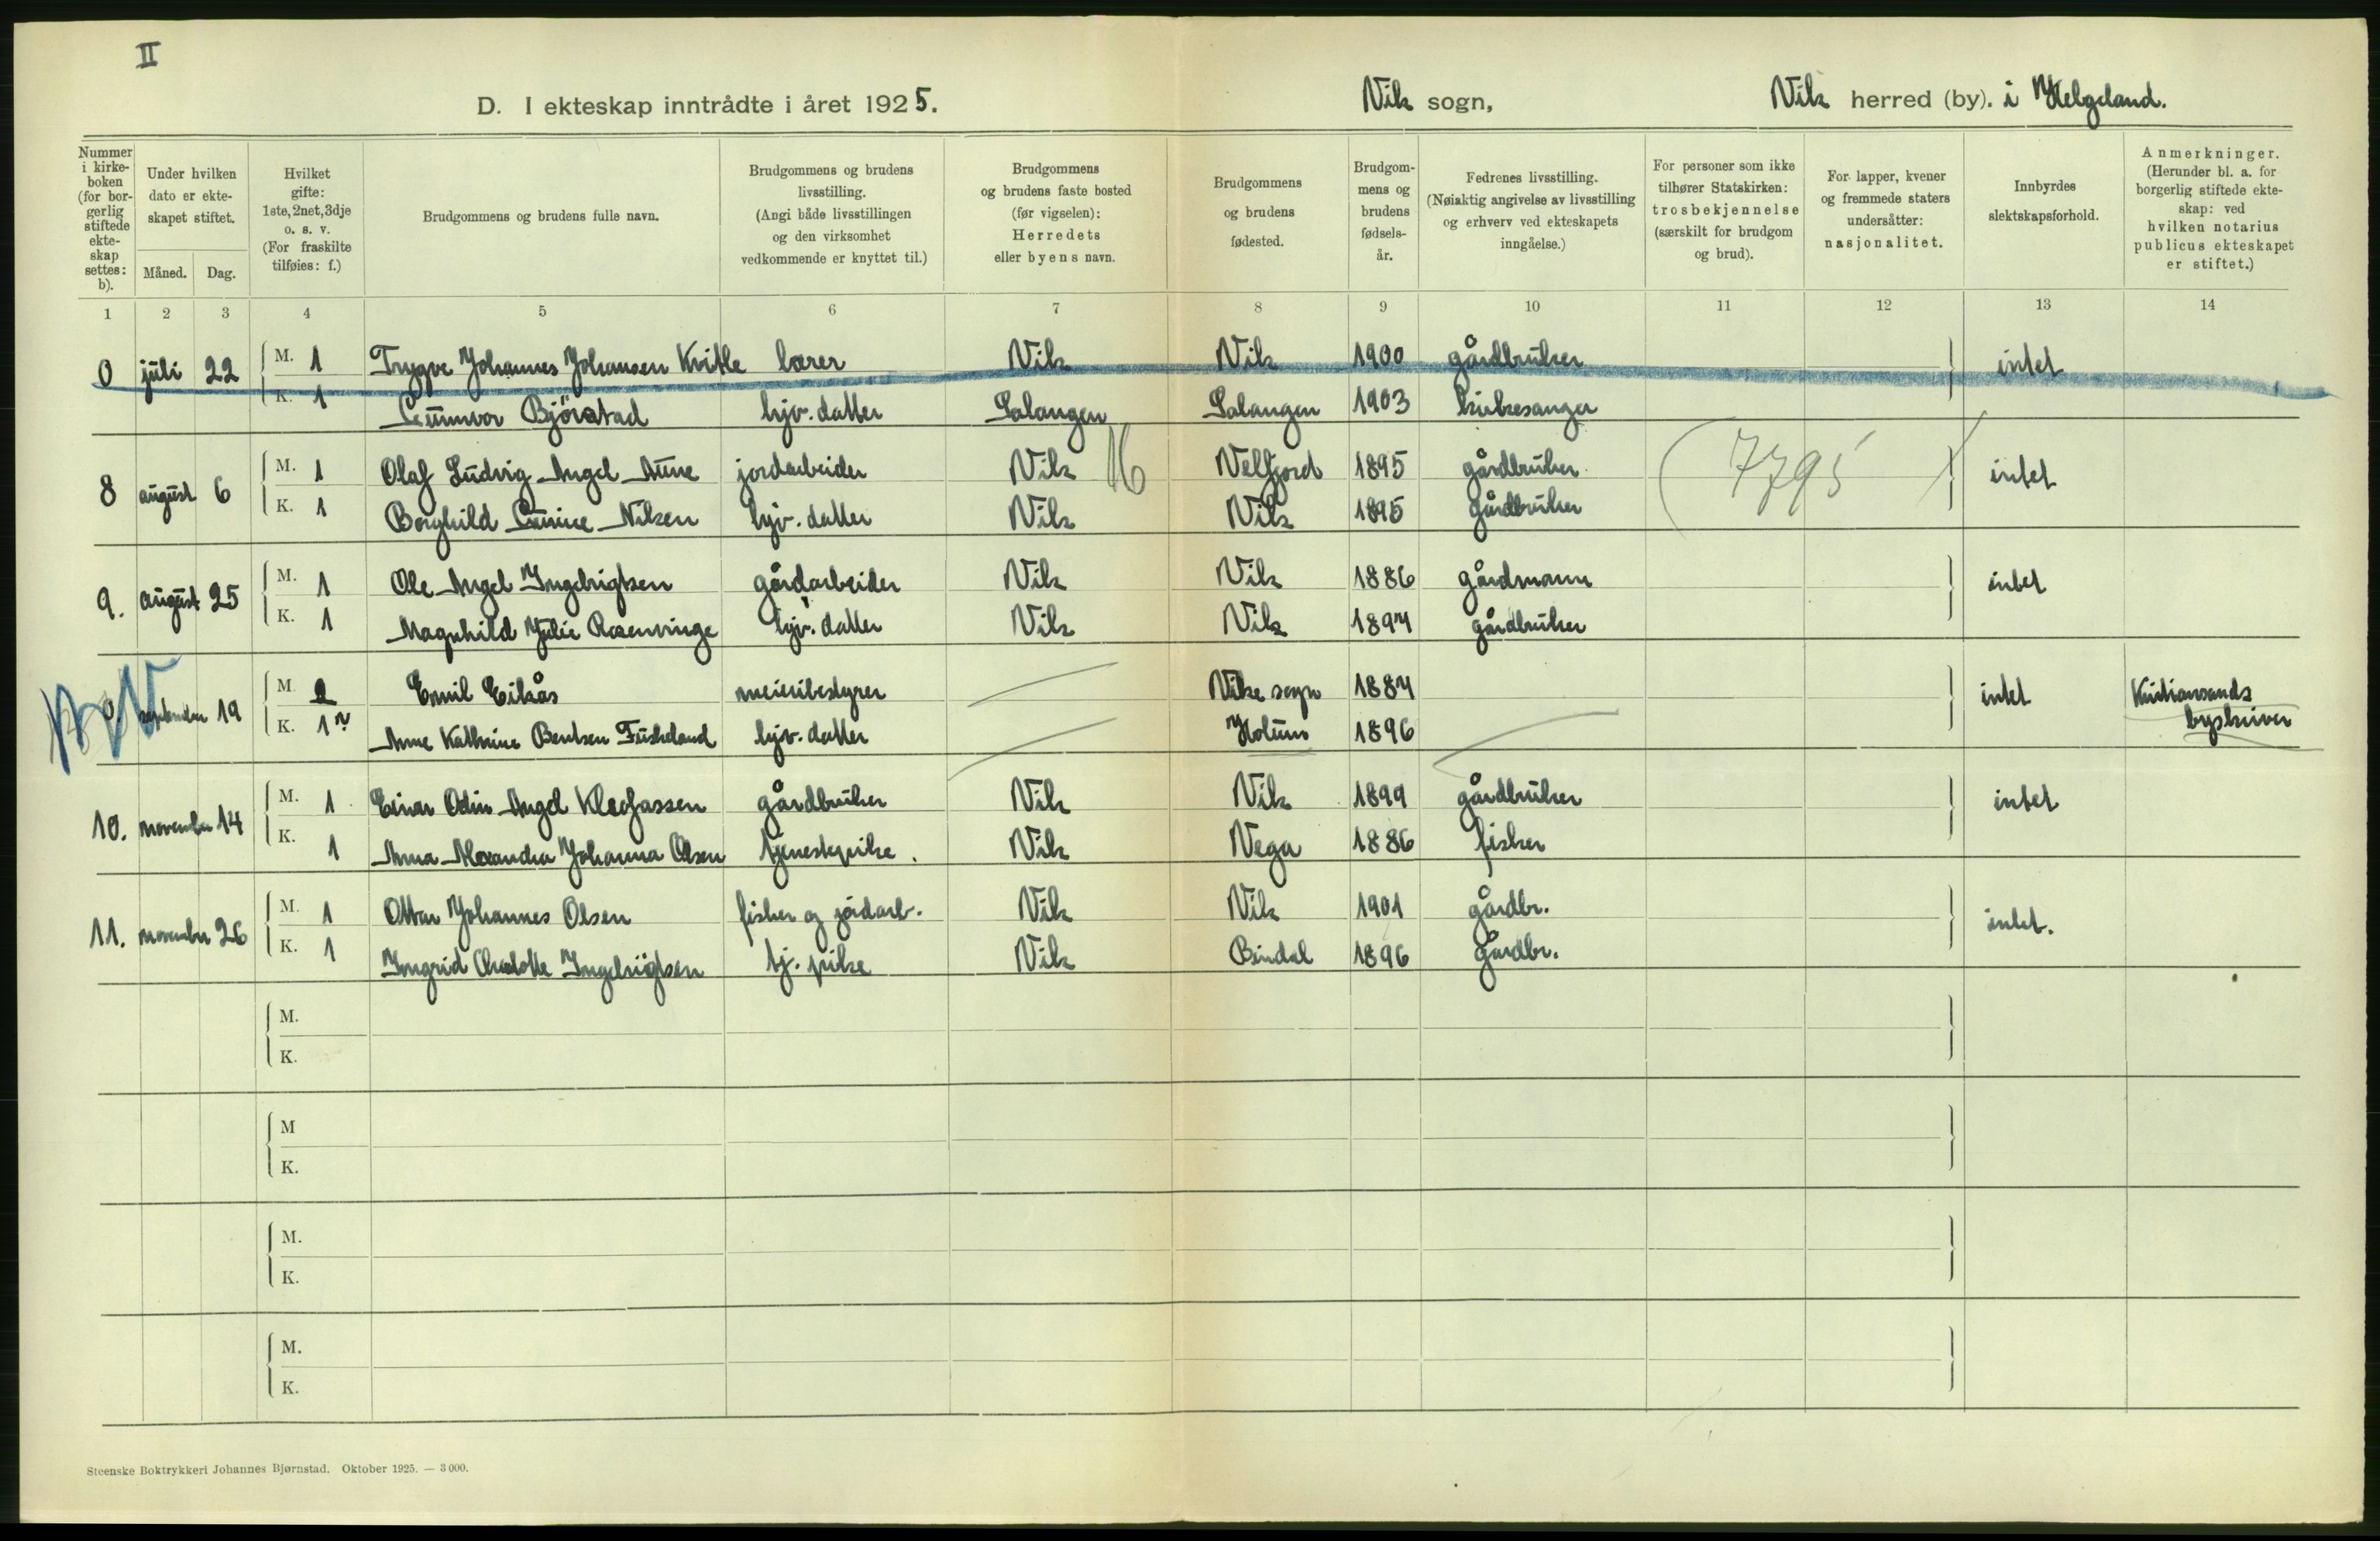 II
D. I ekteskap inntrådte i året 1925. Vik sogn, Vik herred (by). i Helgeland.
Nummer i kirke-boken (for bor-gerlig stiftede ekte-skap settes: b).
Under hvilken dato er ekte-skapet stiftet.
Måned. Dag.
Hvilket gifte: 1ste, 2net, 3dje o. s. v. (For fraskilte tilføies: f.)
Brudgommens og brudens fulle navn.
Brudgommens og brudens livsstilling. (Angi både livsstillingen og den virksomhet vedkommende er knyttet til.)
Brudgommens og brudens faste bosted (før vigselen): Herredets eller byens navn.
Brudgommens og brudens fødested.
Brudgom-mens og brudens fødsels-år.
Fedrenes livsstilling. (Nøiaktig angivelse av livsstilling og erhverv ved ekteskapets inngåelse.)
For personer som ikke tilhører Statskirken: trosbekjennelse (særskilt for brudgom og brud).
For lapper, kvener og fremmede staters undersåtter: nasjonalitet.
Innbyrdes slektskapsforhold.
Anmerkninger. (Herunder bl. a. for borgerlig stiftede ekte-skap: ved hvilken notarius publicus ekteskapet er stiftet.)
1 2 3 4 5 6 7 8 9 10 11 12 13 14
0 juli 22 M. 1 Trygve Johannes Johansen Kvitle lærer Vik Vik 1900 gårdbruker intet
K. 1 Gunnvor Bjørstad hjv. datter Salangen Salangen 1903 kirkesanger
8 august 6 M. 1 Olaf Ludvig Angel Aune jordarbeider Vik 16 Velfjord 1895 gårdbruker (7795) intet
K. 1 Borghild Gunine Nilsen hjv. datter Vik Vik 1895 gårdbruker
9. august 25 M. 1 Ole Angel Ingebrigtsen gårdarbeider Vik Vik 1886 gårdmann intet
K. 1 Magnhild Julie Rosenvinge hjv. datter Vik Vik 1894 gårdbruker
september 19 M. 2 Emil Eikås meieribestyrer Vike sogn 1884 intet Kristiansands
K. 1 Anne Kathrine Bentsen Fuskeland hjv. datter Holum 1896 byskriver
10. november 14 M. 1 Einar Odin Angel Kleofassen gårdbruker Vik Vik 1899 gårdbruker intet
K. 1 Anna Alexandra Johanna Olsen tjenestepike. Vik Vega 1886 fisker
11. november 26 M. 1 Ottar Johannes Olsen fisker og jordarb. Vik Vik 1901 gårdbr. intet.
K. 1 Ingrid Charlotte Ingebrigtsen tj. pike Vik Bindal 1896 gårdbr.
M.
K.
M
K.
M.
K.
M.
K.
Steenske Boktrykkeri Johannes Bjørnstad. Oktober 1925. — 3000.